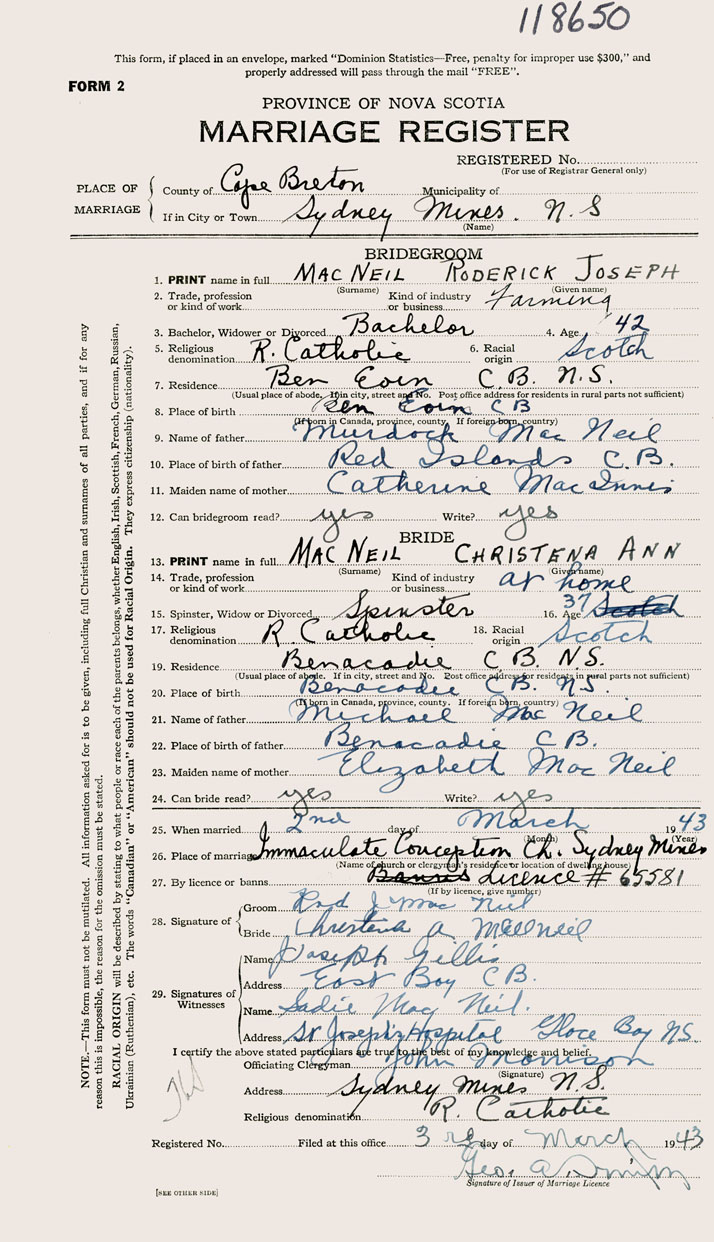 118650
This form, if placed in an envelope, marked "Dominion Statistics—Free, penalty for improper use $300," and
properly addressed will pass through the mail "FREE".
FORM 2
PROVINCE OF NOVA SCOTIA
MARRIAGE REGISTER
REGISTERED No.
(For use of Registrar General only)
PLACE OF MARRIAGE
County of Cape Breton Municipality of
If in City or Town Sydney Mines. N.S
(Name)
BRIDEGROOM
1. PRINT name in full MAC NEIL RODERICK JOSEPH
(Surname) (Given name)
2. Trade, profession or kind of work Kind of industry or business Farming
3. Bachelor, Widower or Divorced Bachelor 4. Age 42
5. Religious denomination R. Catholic 6. Racial origin Scotch
7. Residence Ben Eoin C.B. N.S.
(Usual place of abode. If in city, street and No. Post office address for residents in rural parts not sufficient)
8. Place of birth Ben Eoin CB
(If born in Canada, province, county. If foreign born, country)
9. Name of father Murdock Mac Neil
10. Place of birth of father Red Islands C.B.
11. Maiden name of mother Catherine MacInnis
12. Can bridegroom read? yes Write? yes
BRIDE
13. PRINT name in full MAC NEIL CHRISTENA ANN
(Surname) (Given name)
14. Trade, profession or kind of work Kind of industry or business at home
15. Spinster, Widow or Divorced Spinster 16. Age 37 Scotch
17. Religious denomination R. Catholic 18. Racial origin Scotch
19. Residence Benacadie C.B. N.S.
(Usual place of abode. If in city, street and No. Post office address for residents in rural parts not sufficient)
20. Place of birth Benacadie CB. N.S.
(If born in Canada, province, county. If foreign born, country)
21. Name of father Michael Mac Neil
22. Place of birth of father Benacadie CB.
23. Maiden name of mother Elizabeth Mac Neil
24. Can bride read? yes Write? yes
25. When married 2nd day of March 1943
(Month) (Year)
26. Place of marriage Immaculate Conception Ch. Sydney Mines
(Name of church or clergyman's residence or location of dwelling house)
27. By licence or banns Banns Licence # 65581
(If by licence, give number)
28. Signature of
Groom Rod J Mac Neil
Bride Christena A McNeil
29. Signatures of Witnesses
Name Joseph Gillis
Address East Bay C.B.
Name Sadie Mac Neil.
Address St Joseph's Hospital Glace Bay N.S.
I certify the above stated particulars are true to the best of my knowledge and belief.
Officiating Clergyman John Morrison
(Signature)
Address Sydney Mines N.S.
Religious denomination R. Catholic
Registered No. Filed at this office 3rd day of March 1943
Geo. A.
Signature of Issuer of Marriage Licence
[SEE OTHER SIDE]
NOTE.—This form must not be mutilated. All information asked for is to be given, including full Christian and surnames of all parties, and if for any
reason this is impossible, the reason for the omission must be stated.
RACIAL ORIGIN will be described by stating to what people or race each of the parents belongs, whether English, Irish, Scottish, French, German, Russian,
Ukrainian (Ruthenian), etc. The words "Canadian" or "American" should not be used for Racial Origin. They express citizenship (nationality).